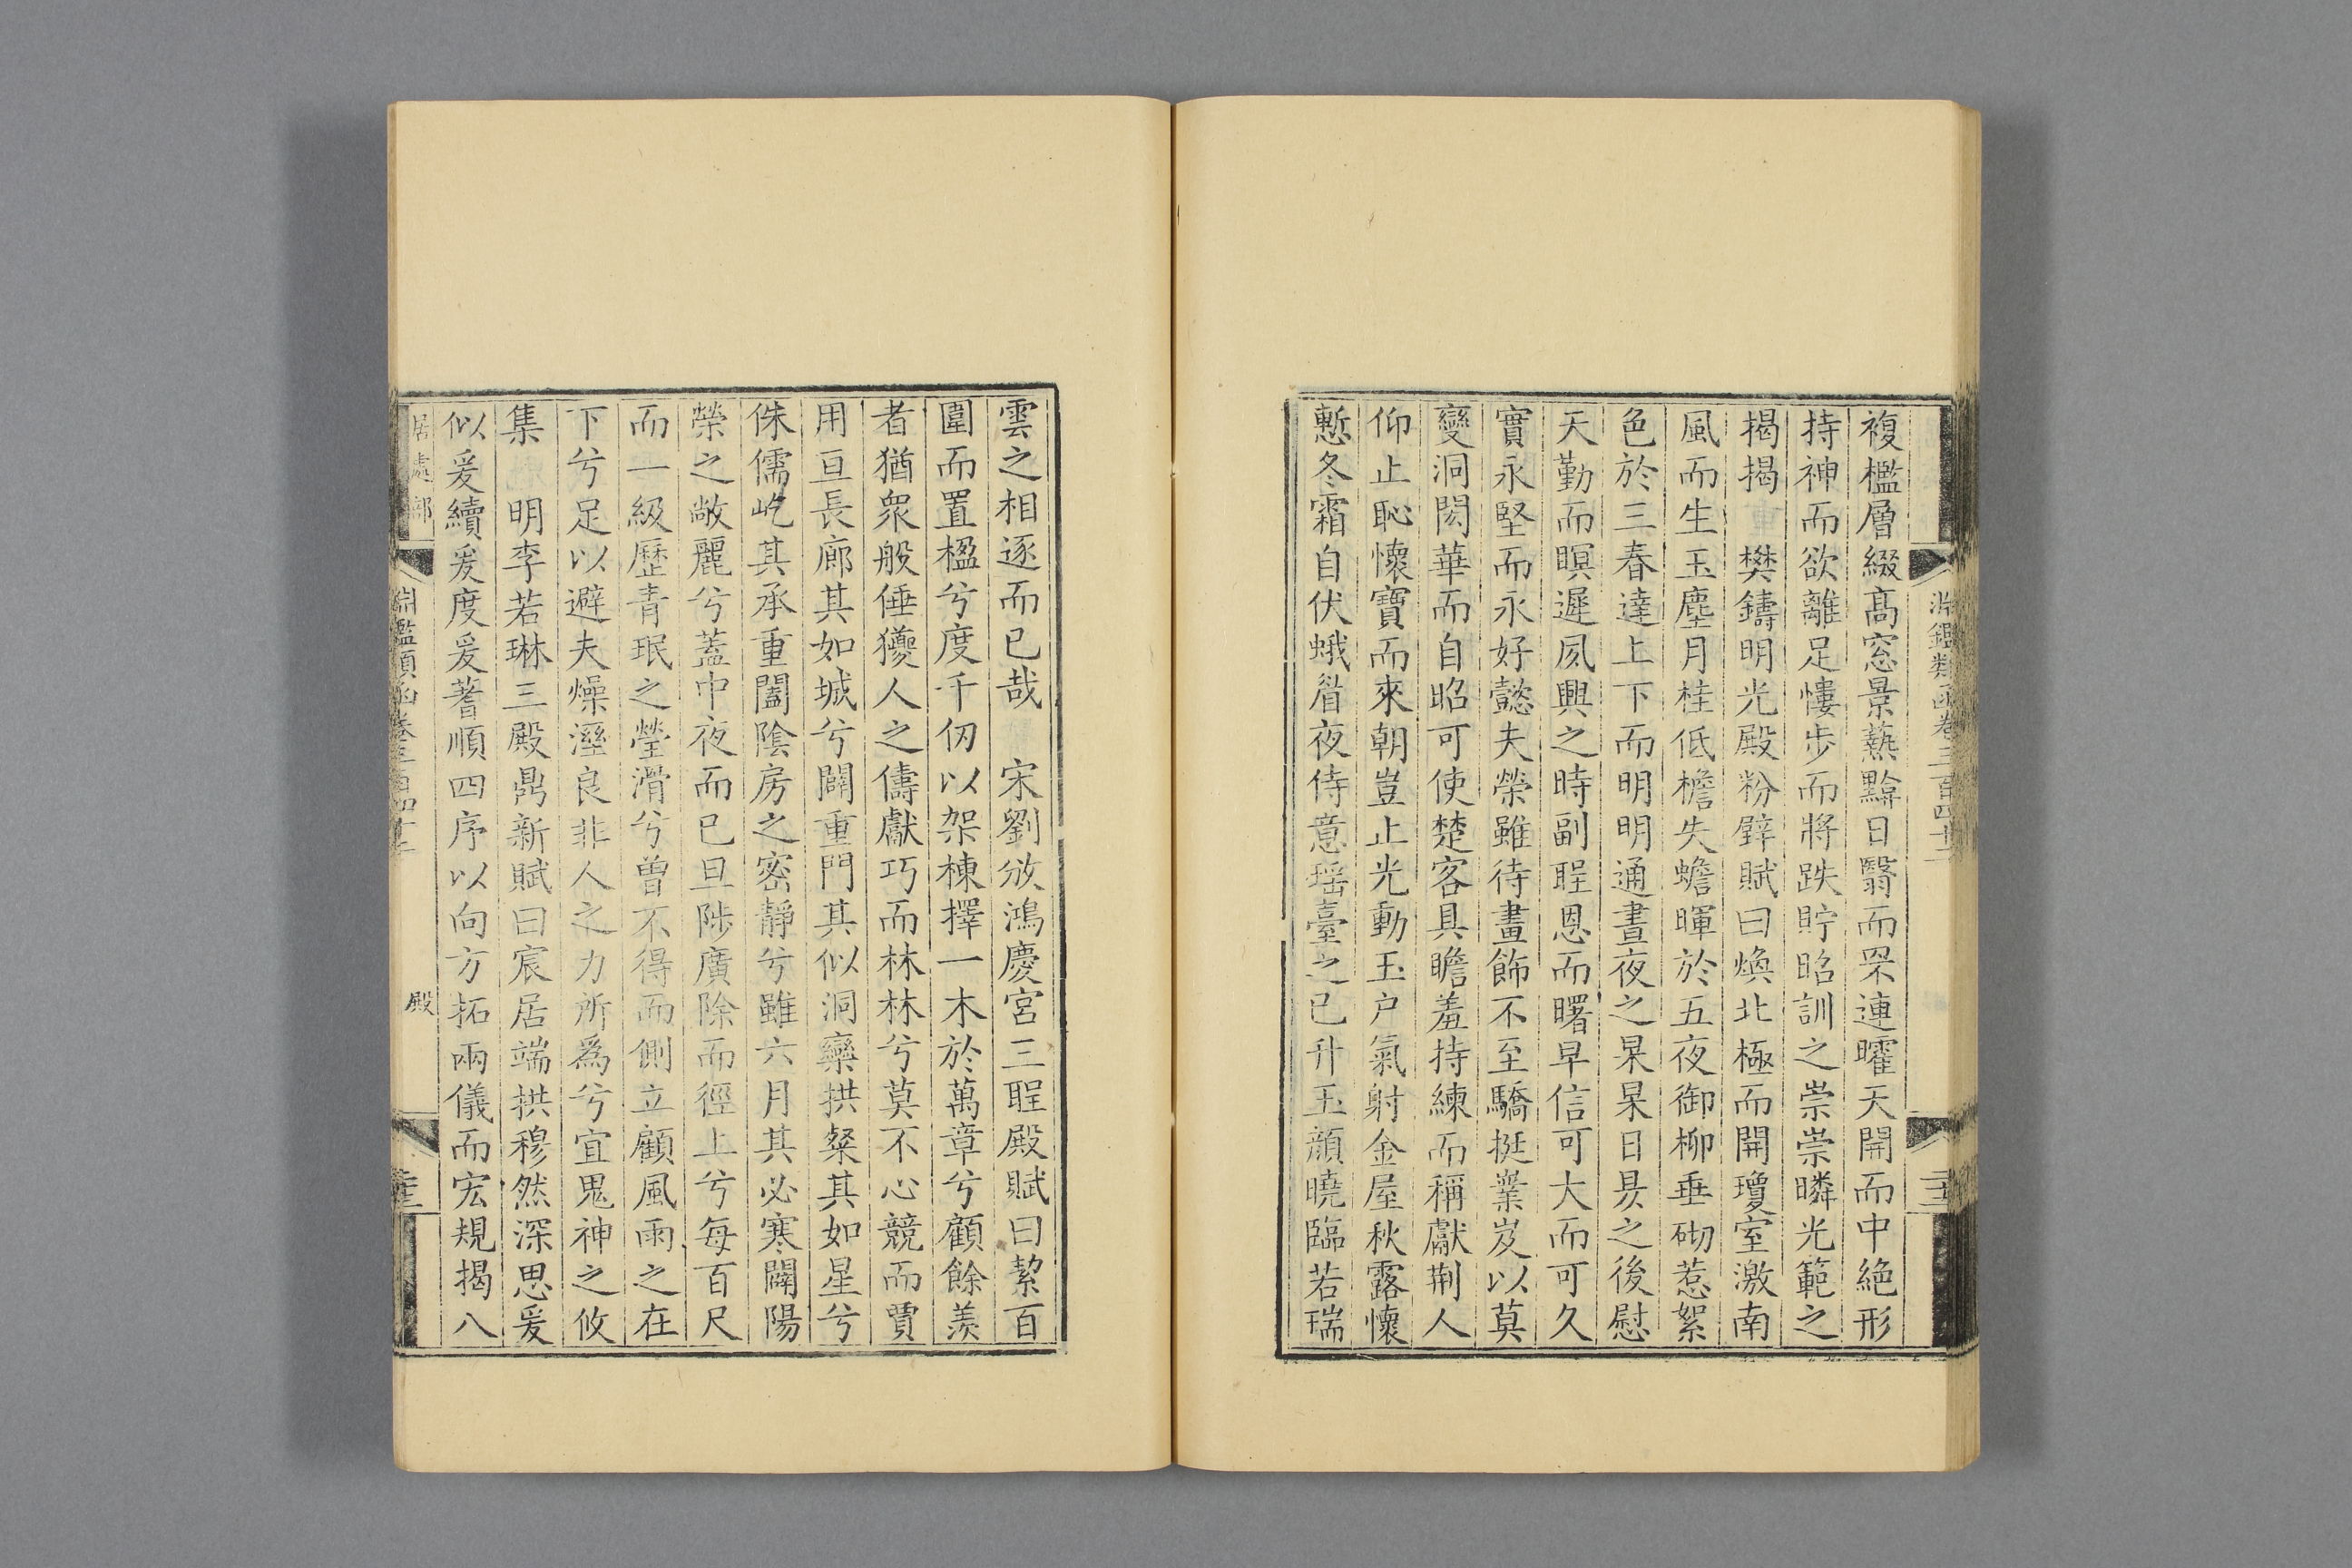 淵鑑類函卷三百四十二
複檻層綴高窓景爇黲日翳而罘連曜天開而中絶形
持神而欲離足悽步而將跌貯昭訓之崇崇瞵光範之
揭揭 樊鑄明光殿粉壁賦曰煥北極而開瓊室激南
風而生玉塵月桂低檐失蟾暉於五夜御柳垂砌惹絮
色於三春達上下而明明通晝夜之杲杲日昃之後慰
天勤而瞑遲夙興之時副聖恩而曙早信可大而可久
實永堅而永好懿夫榮雖待畫飾不至驕挺業岌以莫
變洞閎華而自昭可使楚客具瞻羞持練而稱獻荆人
仰止恥懷寶而來朝豈止光動玉户氣射金屋秋露懷
慙冬霜自伏蛾眉夜侍意瑶臺之已升玉顔曉臨若瑞
雲之相逐而已哉 宋劉攽鴻慶宮三聖殿賦曰絜百
圍而置楹兮度千仞以架棟擇一木於萬章兮顧餘羨
者猶衆般倕獿人之儔獻巧而林林兮莫不心競而賈
用亘長廊其如城兮闢重門其似洞欒拱粲其如星兮
侏儒屹其承重闔陰房之密靜兮雖六月其必寒闢陽
榮之敞麗兮蓋中夜而已旦陟廣除而徑上兮每百尺
而一級歷青珉之瑩滑兮曾不得而側立顧風雨之在
下兮足以避夫燥溼良非人之力所爲兮宜鬼神之攸
集 明李若琳三殿鼎新賦曰宸居端拱穆然深思爰
似爰續爰度爰蓍順四序以向方拓兩儀而宏規揭八
居處部 淵鑑類函卷三百四十二 殿